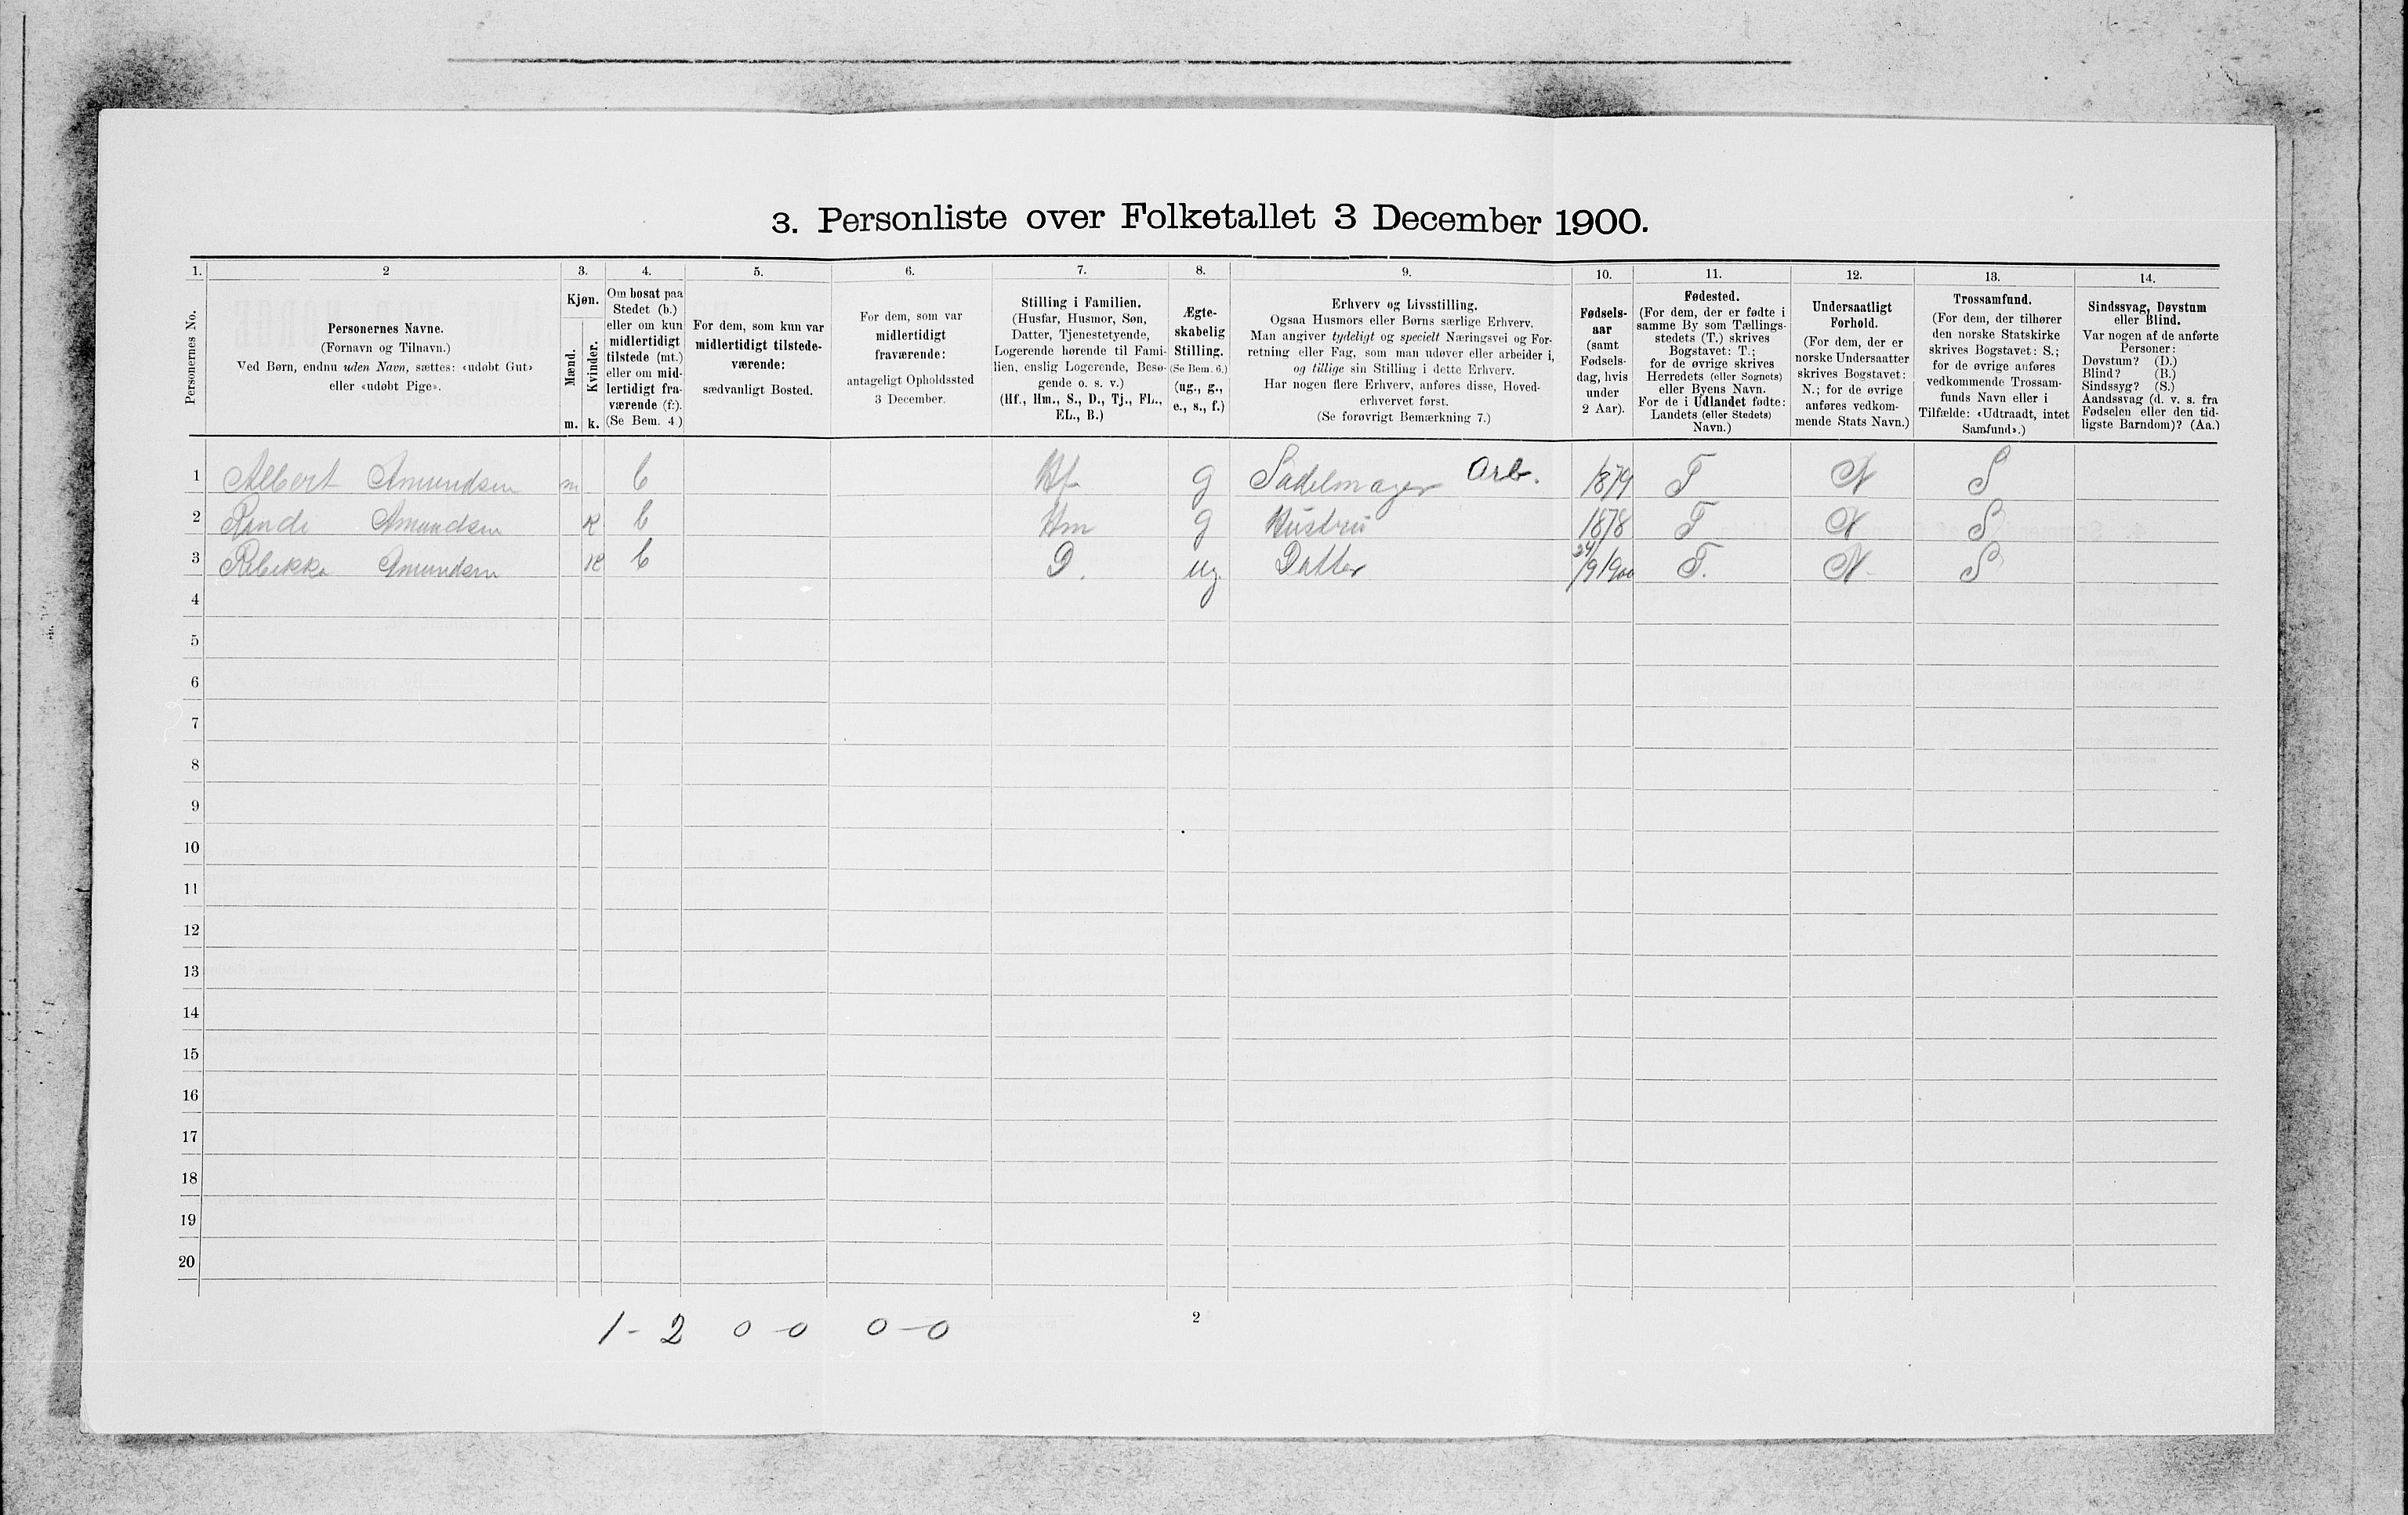 3. Personliste over Folketallet 3 December 1900.
1. 2 3. 4. 5. 6. 7. 8. 9. 10. 11. 12. 13. 14.
Personernes No.
Personernes Navne.
(Fornavn og Tilnavn.)
Ved Børn, endnu uden Navn, sættes: «udøbt Gut»
eller «udøbt Pige».
Kjøn.
Mænd.
Kvinder.
m. k.
Om bosat paa
Stedet (b.)
eller om kun
midlertidigt
tilstede (mt.)
eller om mid-
lertidigt fra-
værende (f.).
(Se Bem. 4.)
For dem, som kun var
midlertidigt tilstede-
værende:
sædvanligt Bosted.
For dem, som var
midlertidigt
fraværende:
antageligt Opholdssted
3 December.
Stilling i Familien.
(Husfar, Husmor, Søn,
Datter, Tjenestetyende,
Logerende hørende til Fami-
lien, enslig Logerende, Besø-
gende o. s. v.)
(Hf., Hm., S., D., Tj., FL.,
EL., B.)
Ægte-
skabelig
Stilling.
(Se Bem. 6.)
(ug., g.,
e., s., f.)
Erhverv og Livsstilling.
Ogsaa Husmors eller Børns særlige Erhverv.
Man angiver tydeligt og specielt Næringsvei og For-
retning eller Fag, som man udøver eller arbeider i,
og tillige sin Stilling i dette Erhverv.
Har nogen flere Erhverv, anføres disse, Hoved-
erhvervet først.
(Se forøvrigt Bemærkning 7.)
Fødsels-
aar
(samt
Fødsels-
dag, hvis
under
2 Aar).
Fødested.
(For dem, der er fødte i
samme By som Tællings-
stedets (T.) skrives
Bogstavet: T.;
for de øvrige skrives
Herredets (eller Sognets)
eller Byens Navn.
For de i Udlandet fødte:
Landets (eller Stedets)
Navn.)
Undersaatligt
Forhold.
(For dem, der er
norske Undersaatter
skrives Bogstavet:
N.; for de øvrige
anføres vedkom-
mende Stats Navn.)
Trossamfund.
(For dem, der tilhører
den norske Statskirke
skrives Bogstavet: S.;
for de øvrige anføres
vedkommende Trossam-
funds Navn eller i
Tilfælde: «Udtraadt, intet
Samfund».)
Sindssvag, Døvstum
eller Blind.
Var nogen af de anførte
Personer:
Døvstum? (D.)
Blind? (B.)
Sindssyg? (S.)
Aandssvag (d. v. s. fra
Fødselen eller den tid-
ligste Barndom)? (Aa.)
1 Albert Amundsen m b Hf g Sadelmager Arb. 1879 T N S
2 Randi Amundsen k b Hm g Hustru 1878 T N S
3 Rebekka Amundsen k b D. ug. Datter 24/9 1900 T. N. S
4
5
6
7
8
9
10
11
12
13
14
15
16
17
18
19
20
1 - 2 0 - 0 0 - 0
2